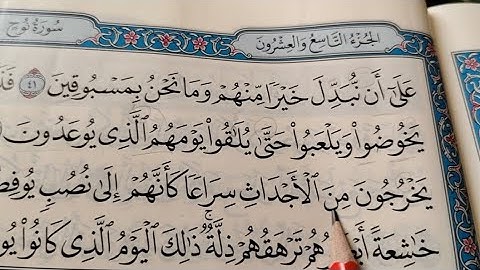 سُورَةُ نُوحٍ
الجُزْءُ التَّاسِعُ وَالعِشْرُونَ
عَلَىٰٓ أَن نُّبَدِّلَ خَيْرًا مِّنْهُمْ وَمَا نَحْنُ بِمَسْبُوقِينَ ٤١
يَخُوضُوا۟ وَيَلْعَبُوا۟ حَتَّىٰ يُلَٰقُوا۟ يَوْمَهُمُ ٱلَّذِى يُوعَدُونَ
يَخْرُجُونَ مِنَ ٱلْأَجْدَاثِ سِرَاعًا كَأَنَّهُمْ إِلَىٰ نُصُبٍ
خَٰشِعَةً تَرْهَقُهُمْ ذِلَّةٌ ۚ ذَٰلِكَ ٱلْيَوْمُ ٱلَّذِى كَانُوا۟